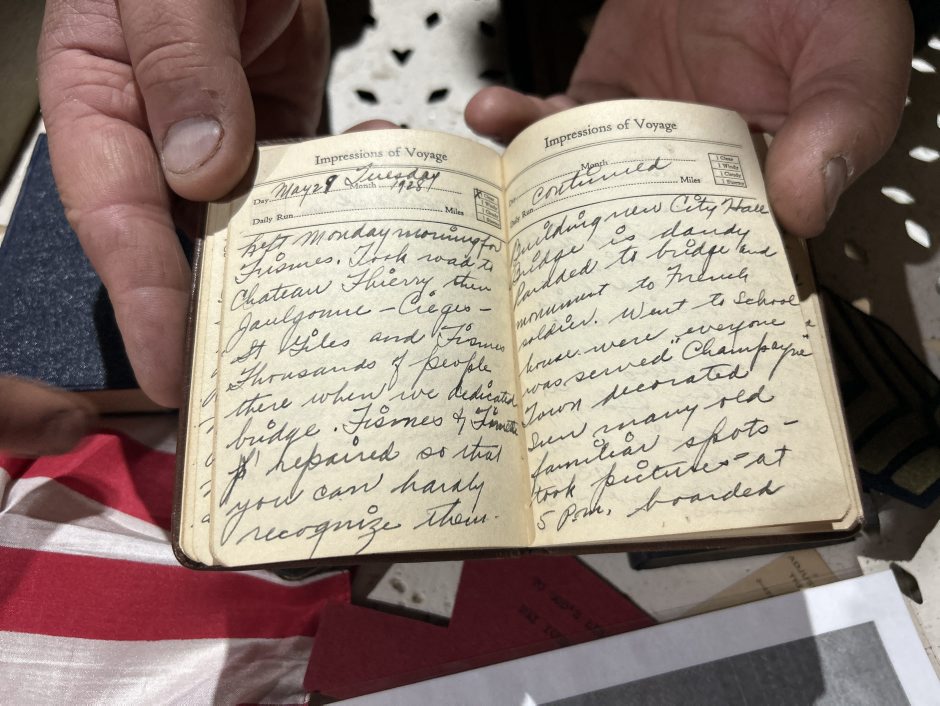 Impressions of Voyage
Day May 29 Tuesday Month 1928
Daily Run Miles
Left Monday morning for
Fismes. Took road to
Chateau Thierry then
Jaulgonne - Cieges -
St Giles and Fismes
Thousands of people
there when we dedicated
bridge. Fismes &
repaired so that
you can hardly
recognize them.
Impressions of Voyage
Month
Continued
Daily Run Miles
1 Clear
1 Windy
1 Cloudy
1 Stormy
Building new City Hall
Bridge is dandy
Paraded to bridge and
monument to French
soldier. Went to School
house were everyone
was served "Champayne"
Town decorated
Seen many old
familiar spots -
took pictures - at
5 P.M. boarded